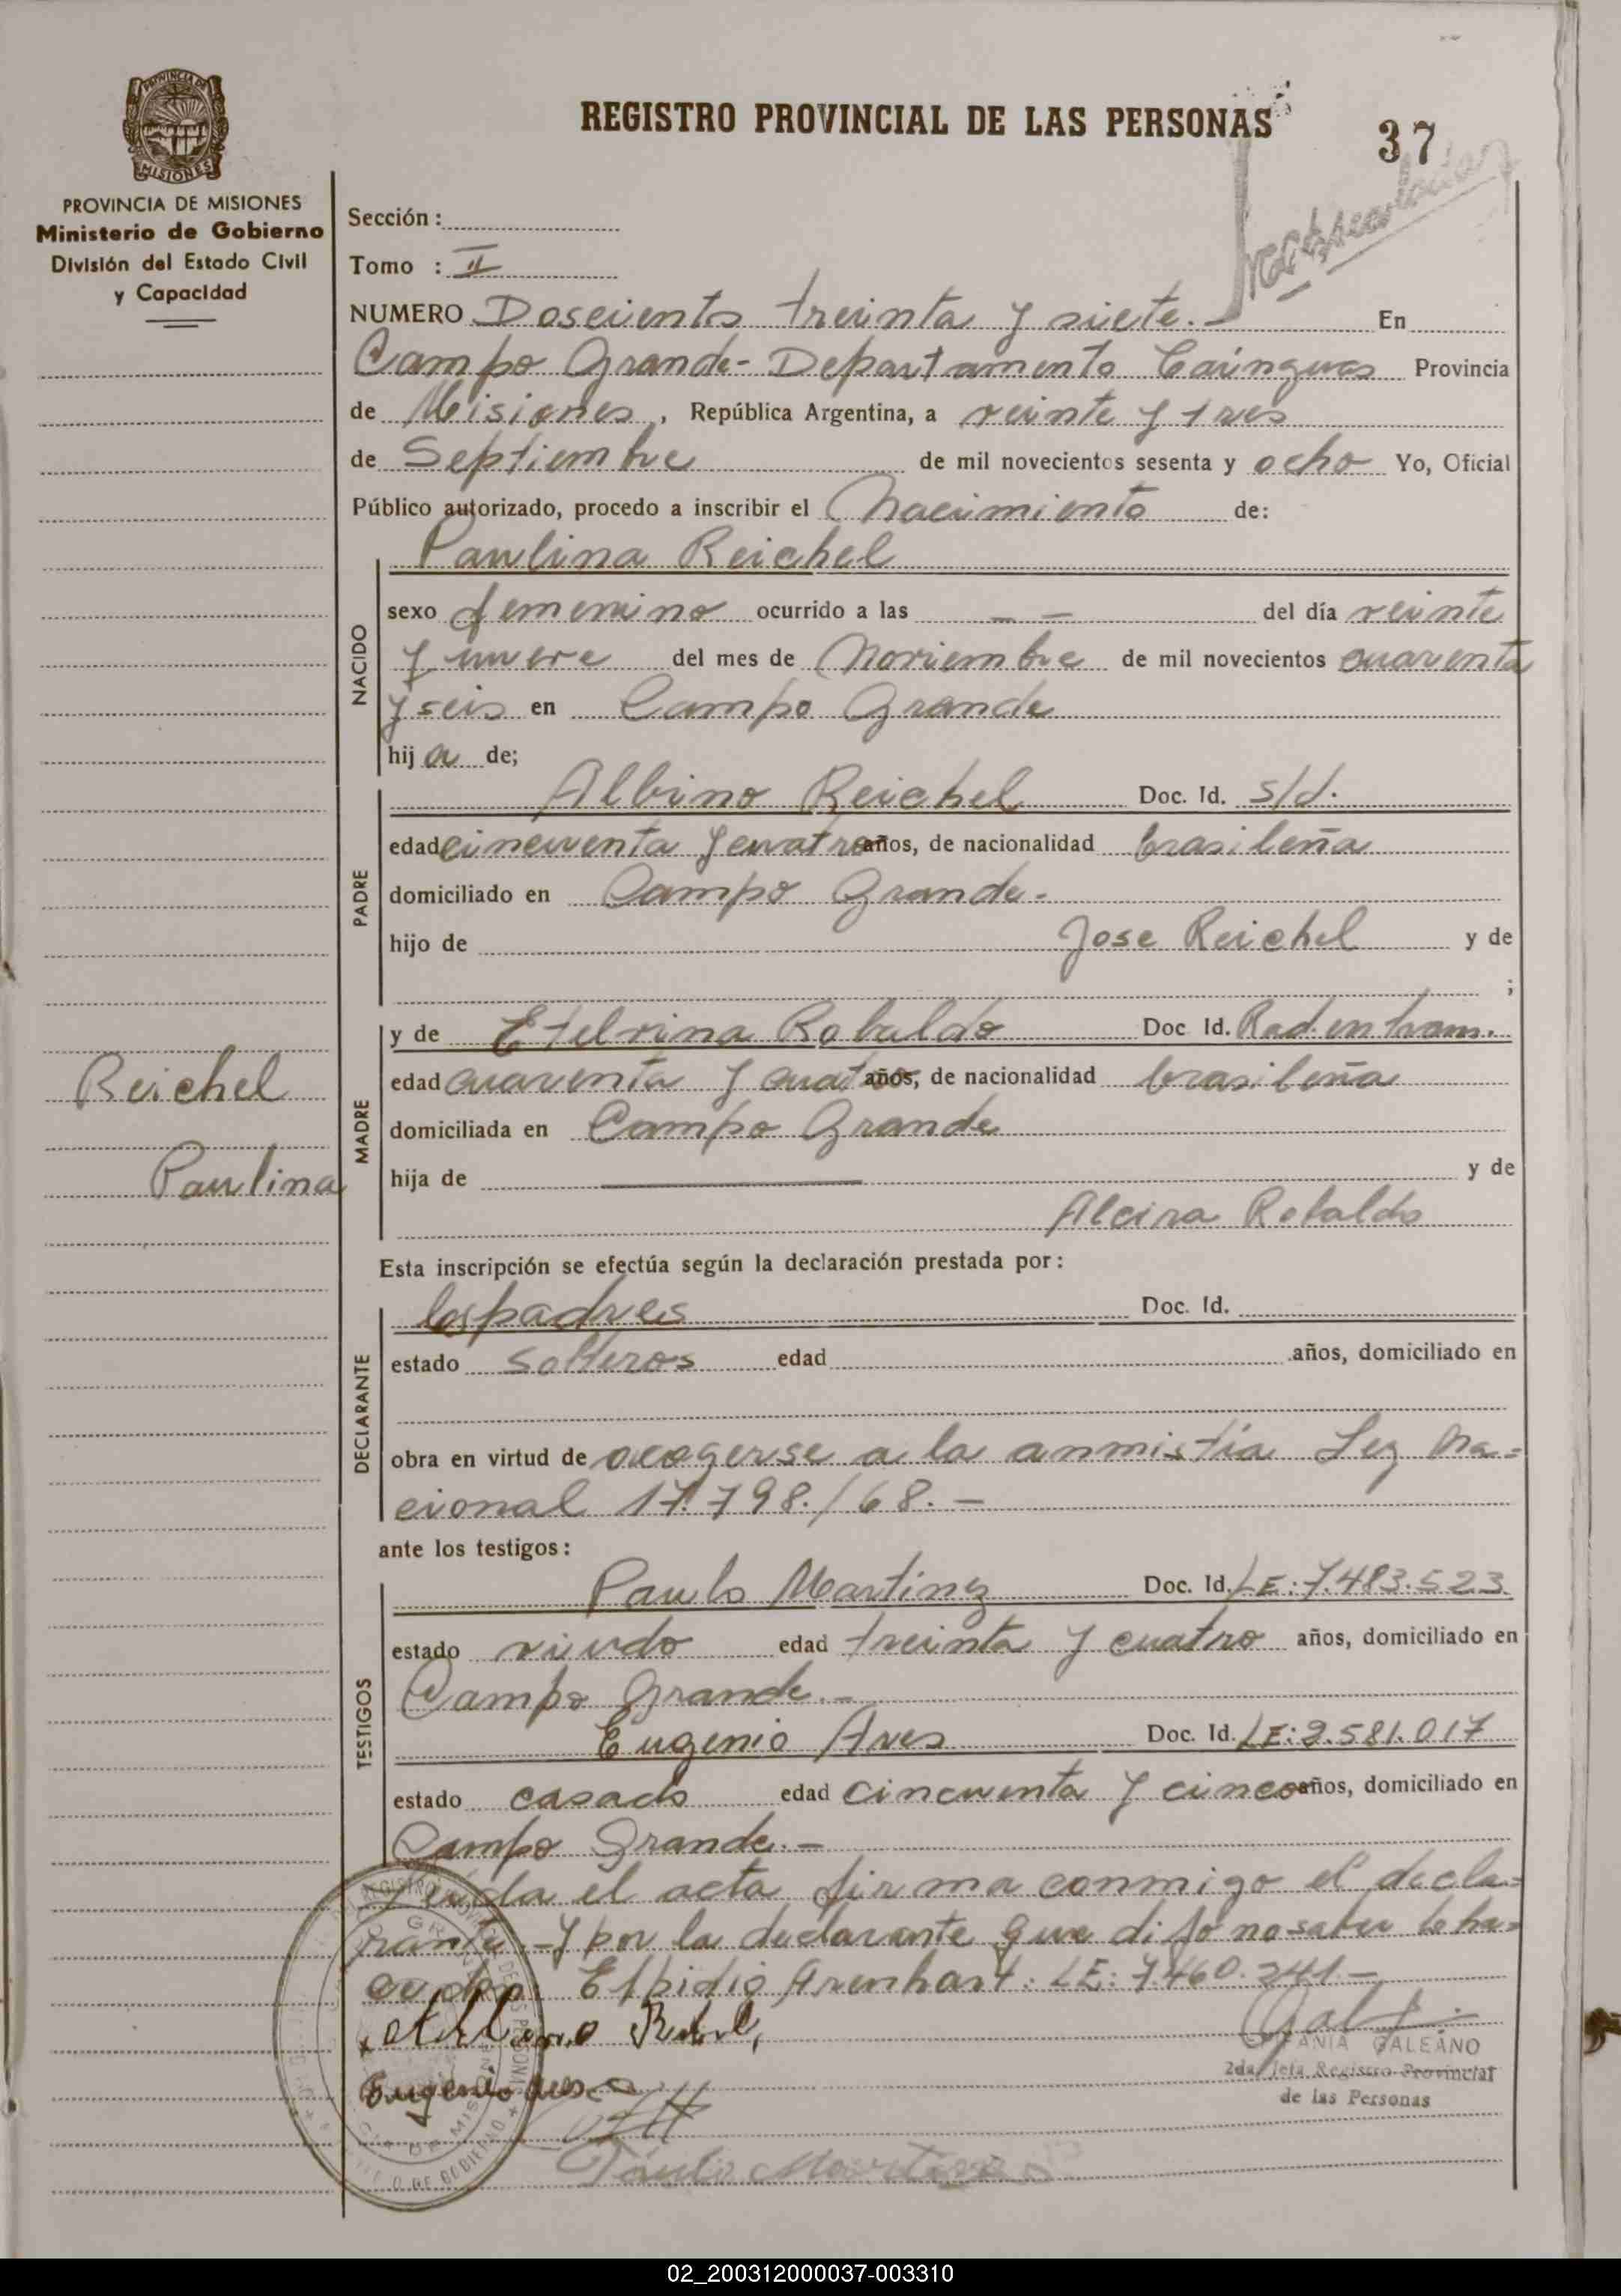 REGISTRO PROVINCIAL DE LAS PERSONAS
37
PROVINCIA DE MISIONES
Ministerio de Gobierno
División del Estado Civil
y Capacidad
Sección :
Tomo : II
NUMERO Doscientos treinta y siete.- En
Campo Grande- Departamento Cainguas Provincia
de Misiones, República Argentina, a veinte y tres
de Septiembre de mil novecientos sesenta y ocho Yo, Oficial
Público autorizado, procedo a inscribir el Nacimiento de:
Paulina Reichel
NACIDO
sexo femenino ocurrido a las — — del día veinte
y nueve del mes de Noviembre de mil novecientos cuarenta
y seis en Campo Grande
hija de;
PADRE
Albino Reichel Doc. Id. s/d.
edad cincuenta y cuatro años, de nacionalidad brasileña
domiciliado en Campo Grande-
hijo de Jose Reichel y de
;
MADRE
y de Etelvina Robaldo Doc Id. Rad. en tram.
edad cuarenta y cuatro años, de nacionalidad brasileña
domiciliada en Campo Grande
hija de y de
Alcira Robaldo
Reichel
Paulina
Esta inscripción se efectúa según la declaración prestada por :
DECLARANTE
los padres Doc. Id.
estado solteros edad años, domiciliado en
obra en virtud de acogerse a la anmistía Ley Na=
cional 17.798./68.-
ante los testigos :
TESTIGOS
Paulo Martinez Doc. Id. LE: 7.483.523
estado viudo edad treinta y cuatro años, domiciliado en
Campo Grande.-
Eugenio Aves Doc. Id. LE: 2.581.017
estado casado edad cincuenta y cinco años, domiciliado en
Campo Grande.-
Leida el acta firma conmigo el decla=
rante.- y por la declarante que dijo no saber lo ha=
ce don: Elpidio Arenhart: LE: 7.460.241.-
Eugenio Aves
GALEANO
2da. Jefa Registro Provincial
de las Personas
Paulo Martinez
02_200312000037-003310